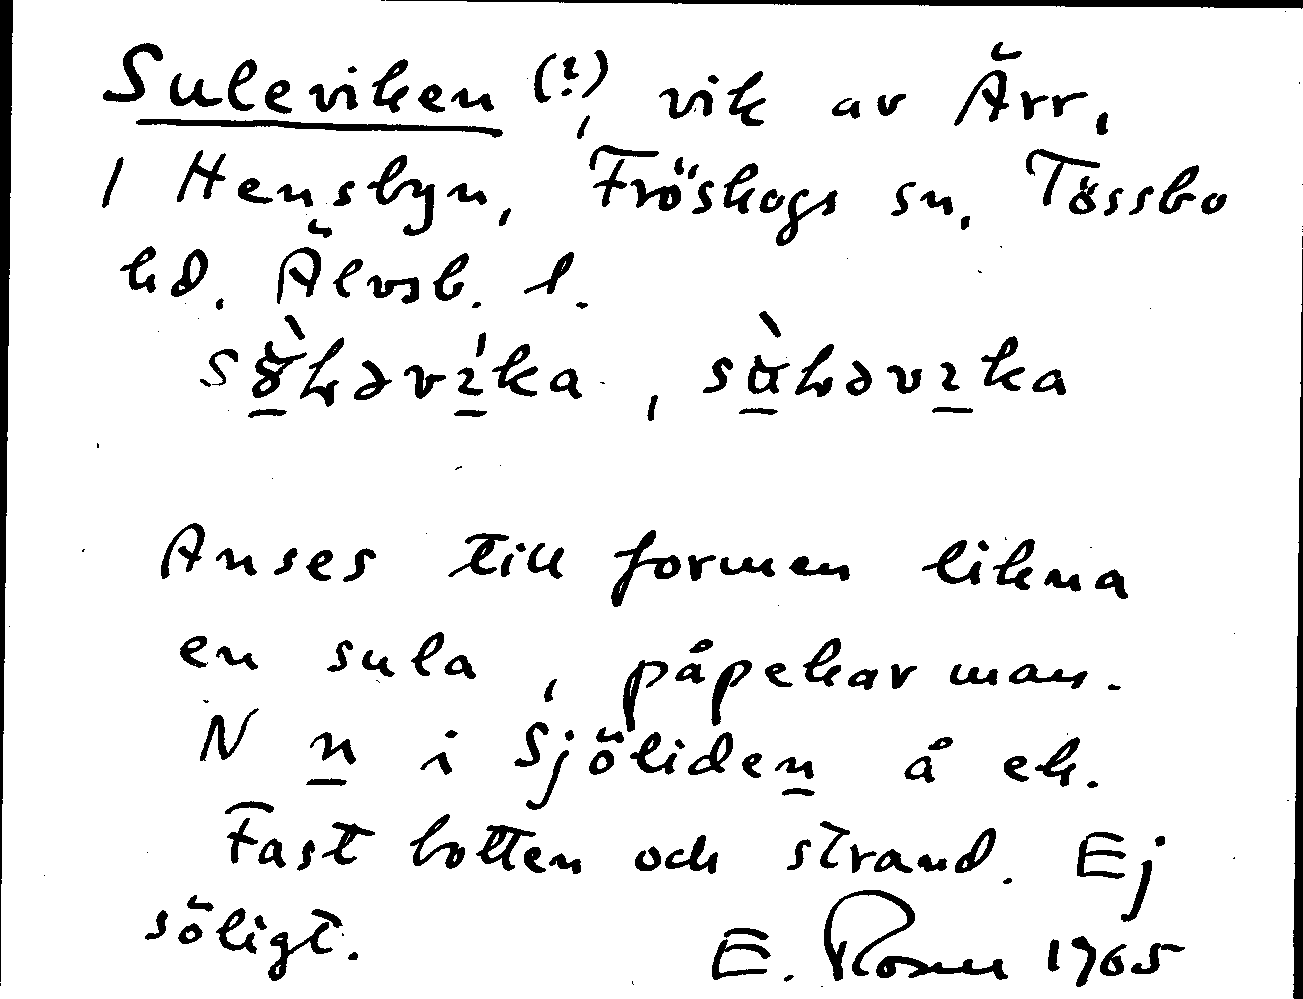 Suleviken (?), vik av Ärr,
1 Hensbyn, Fröskogs sn, Tössbo
hd. Älvsb. l.
Anses till formen likna
en sula, påpekar man.
N n i Sjöliden å ek.
Fast botten och strand. Ej
söligt. E. Rosell 1965